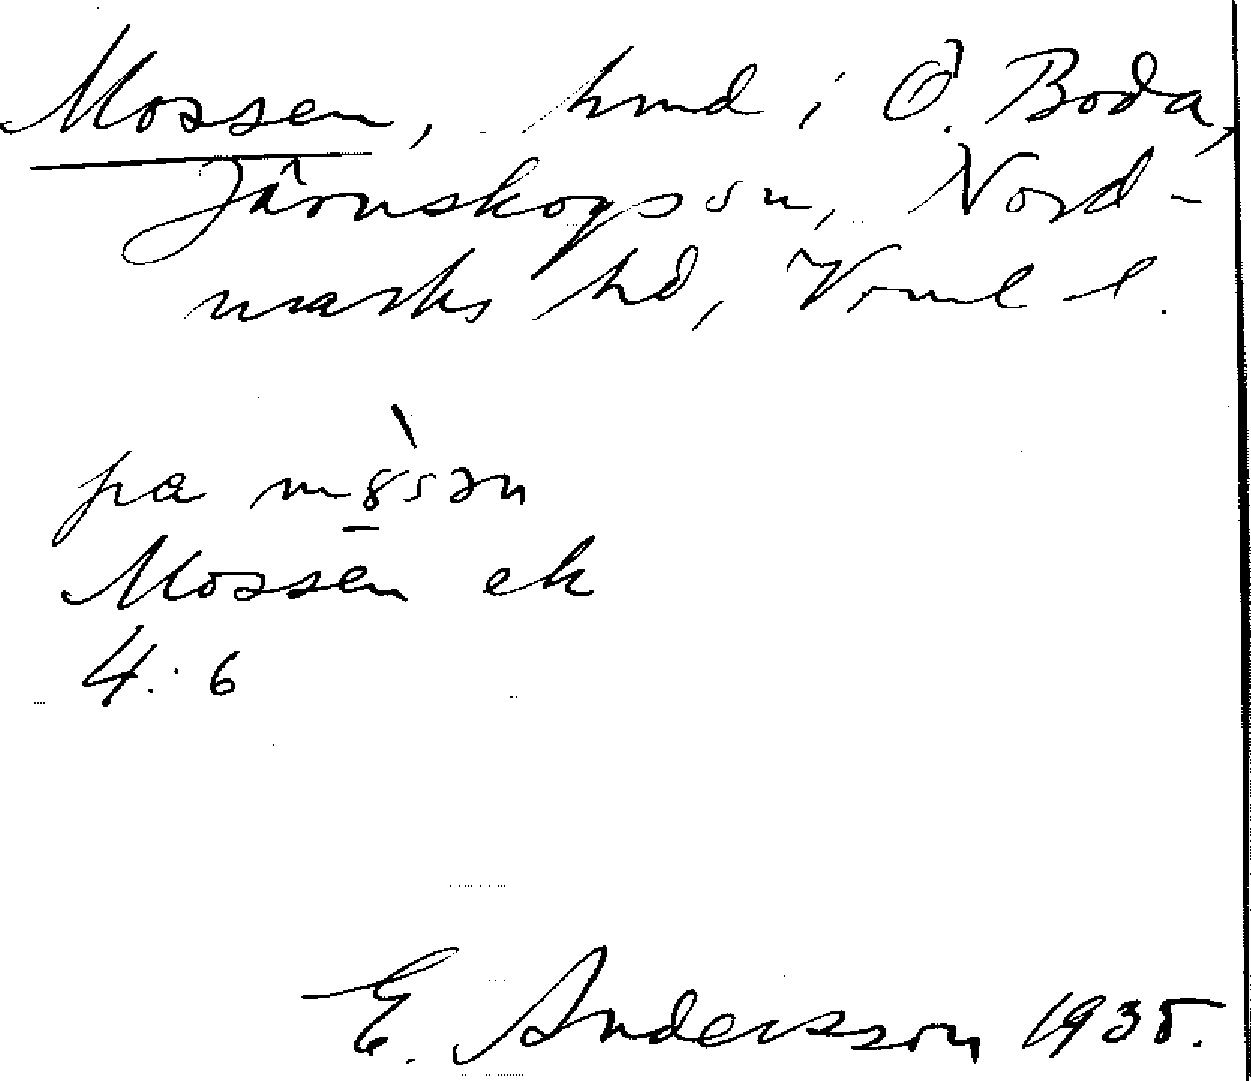 Mossen, hmd i Ö. Boda,
Järnskogs sn, Nord-
marks hd, Vrml l.
pa
Mossen ek
4:6
E. Andersson 1935.